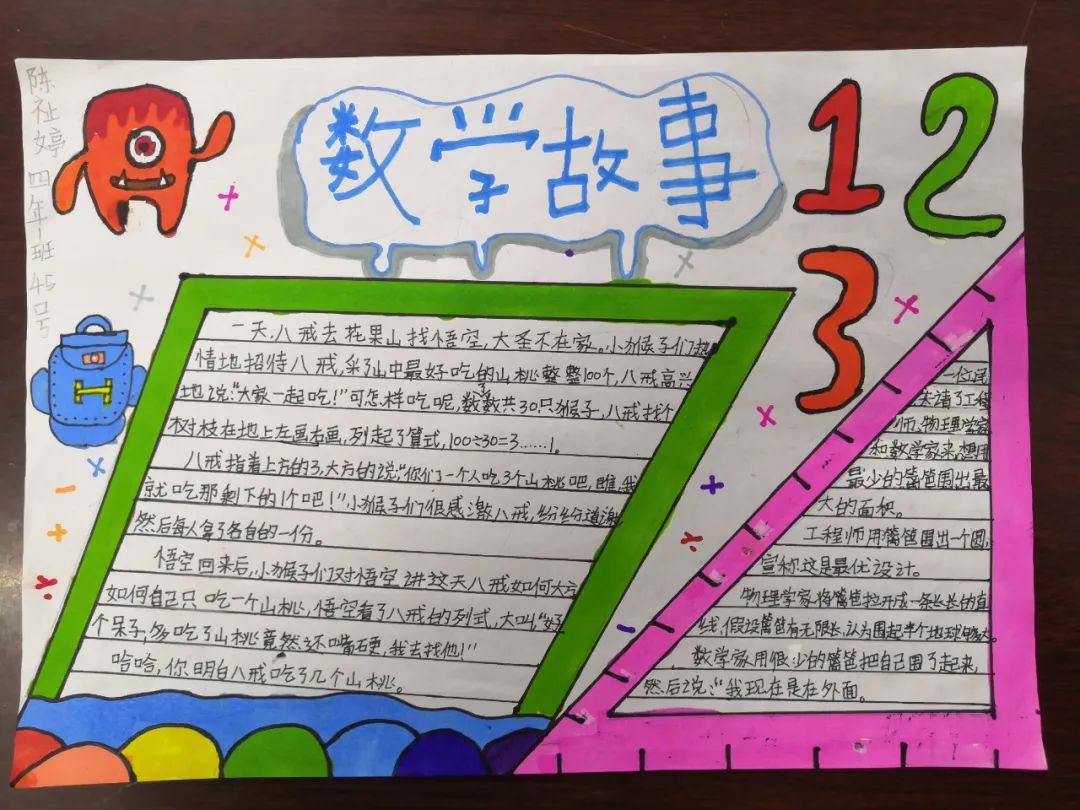 陈祉婷 四年一班 45号
数学故事
1 2
3
一天,八戒去花果山找悟空,大圣不在家。小猴子们热
情地招待八戒,采了山中最好吃的山桃整整100个,八戒高兴
地说:“大家一起吃!”可怎样吃呢,数了数共30只猴子,八戒找个
树枝在地上左画右画,列起了算式,100÷30=3……1。
八戒指着上方的3,大方的说:“你们一个人吃3个山桃吧,瞧,我
就吃那剩下的1个吧!”小猴子们很感激八戒,纷纷道谢,
然后每人拿了各自的一份。
悟空回来后,小猴子们对悟空讲这天八戒如何大方,
如何自己只吃一个山桃,悟空看了八戒的列式,大叫“好
个呆子,多吃了山桃竟然还嘴硬,我去找他!”
哈哈,你明白八戒吃了几个山桃。
一位
请了工程
师、物理学家
和数学家来,想用
最少的篱笆围出最
大的面积。
工程师用篱笆围出一个圆,
宣称这是最优设计。
物理学家将篱笆拉开成一条长长的直
线,假设篱笆有无限长,认为围起半个地球够大。
数学家用很少的篱笆把自己围了起来,
然后说:“我现在是在外面。